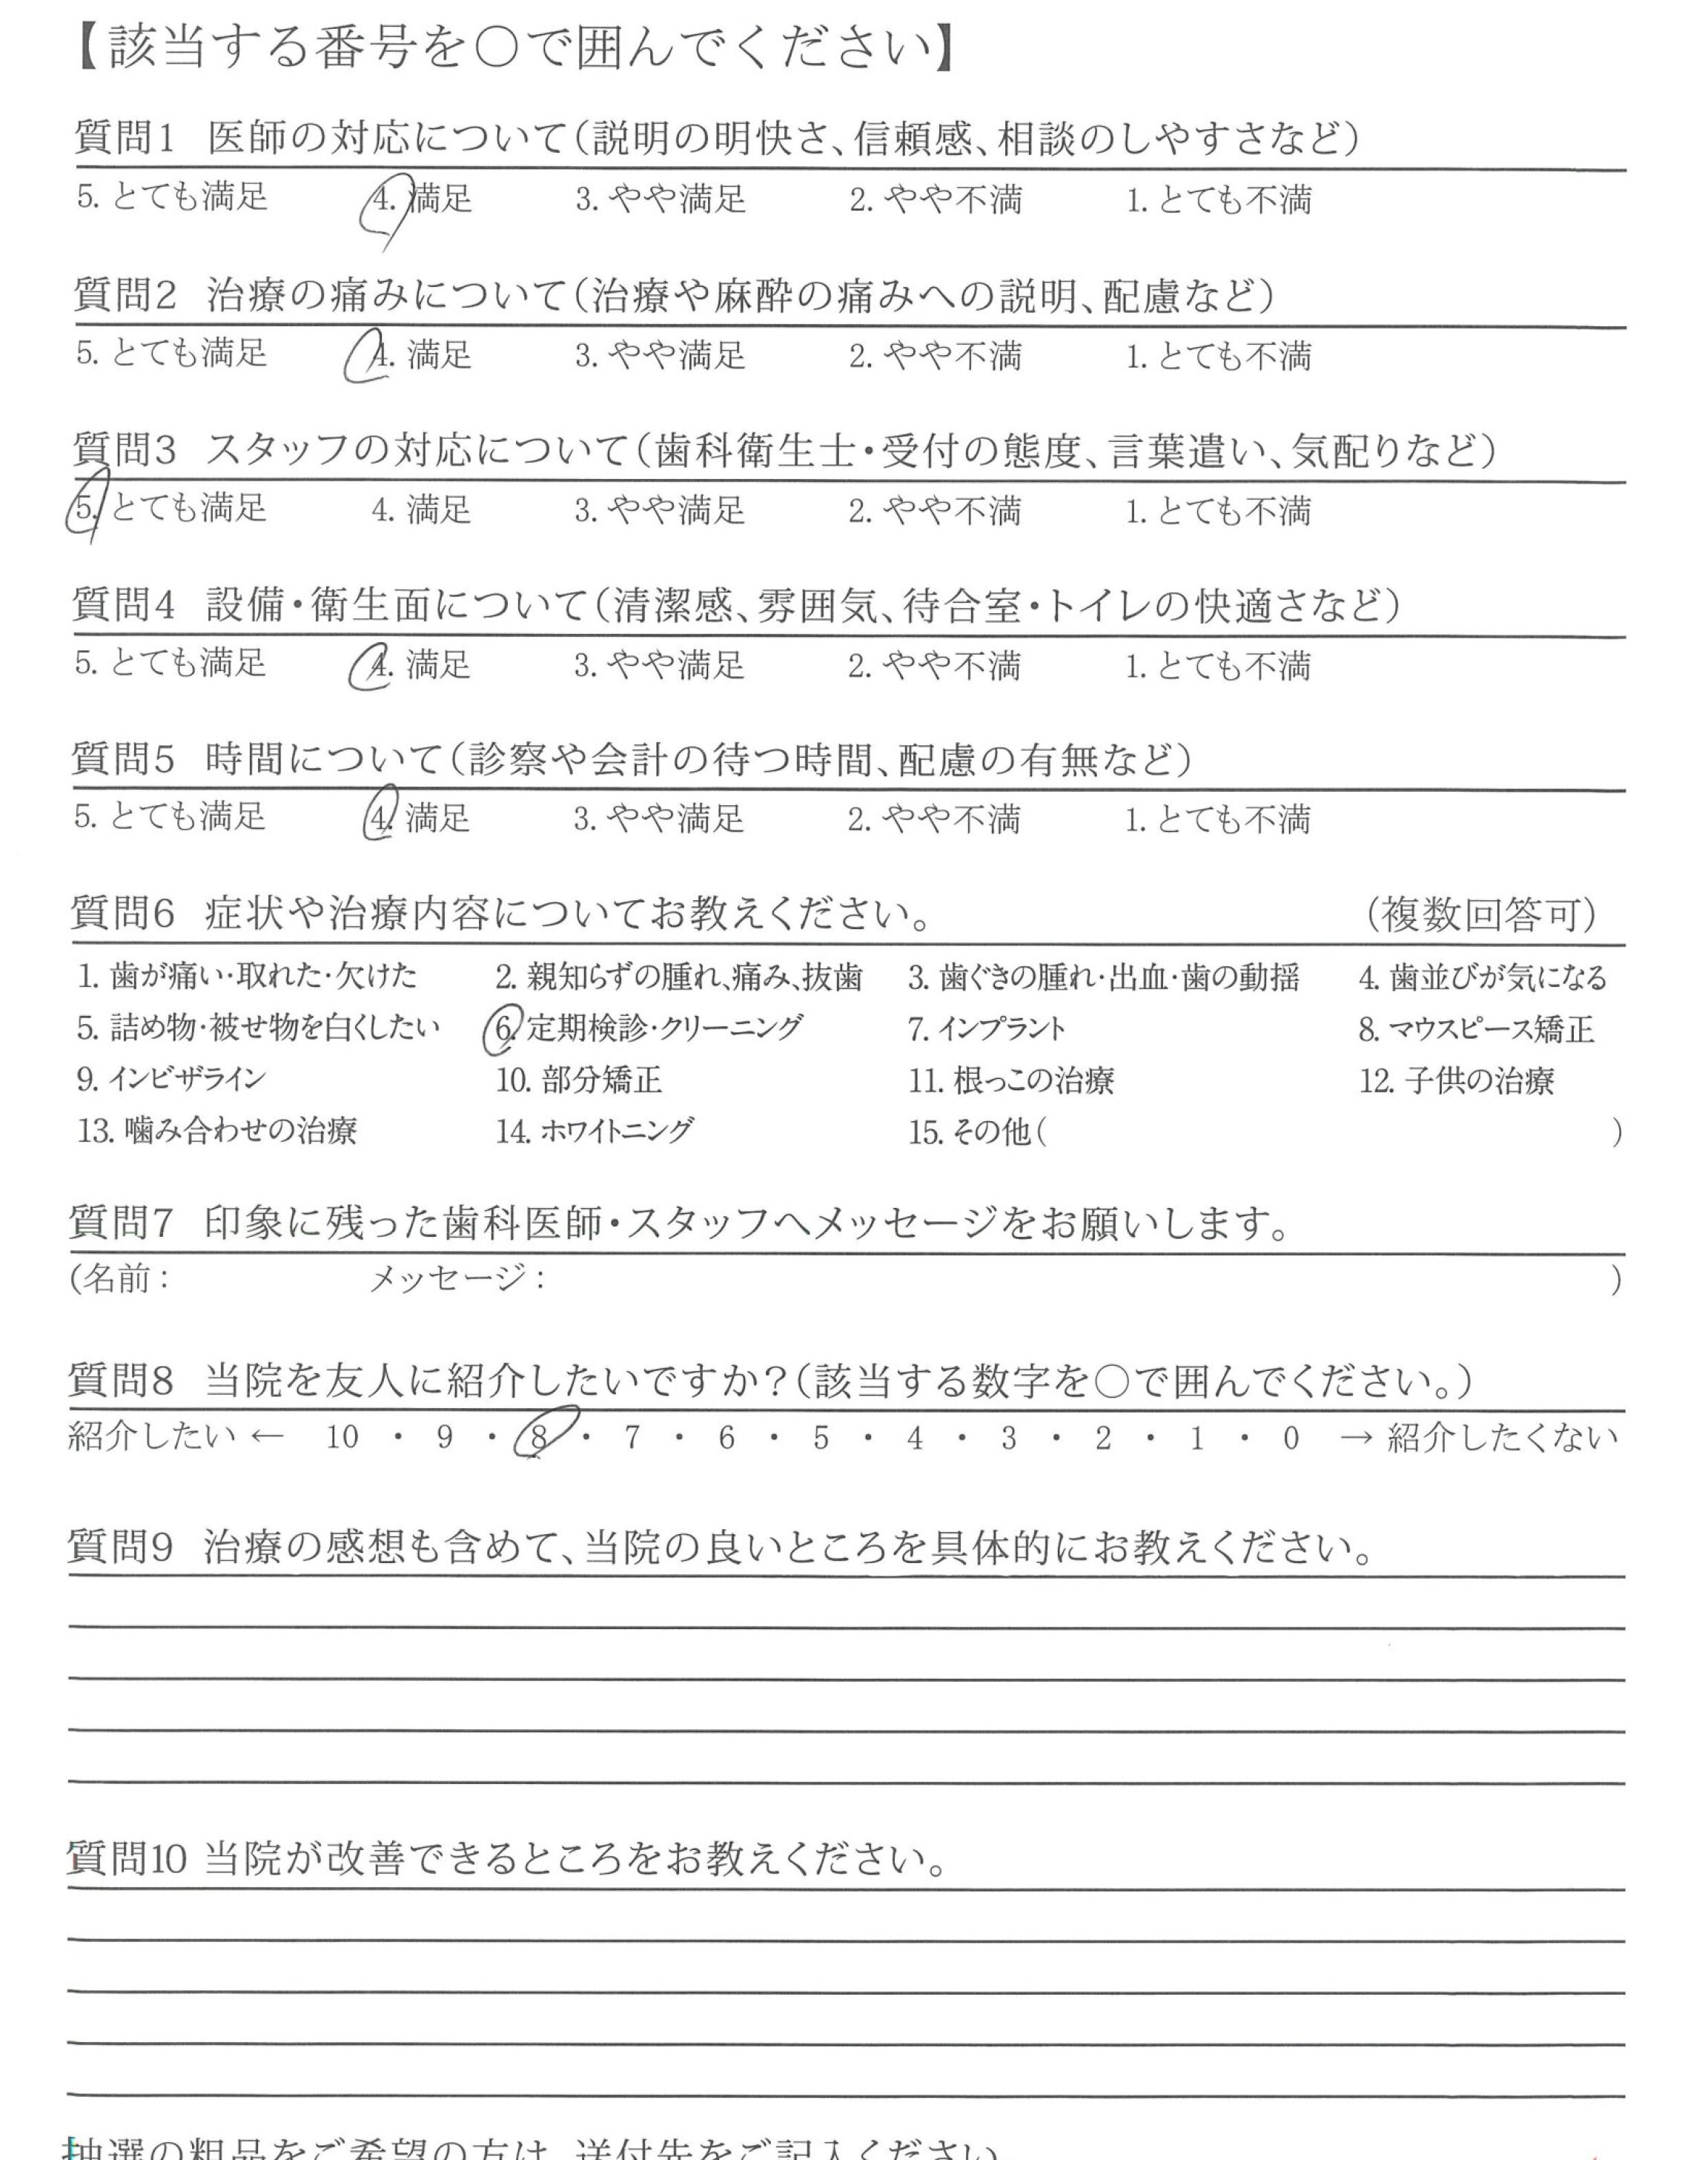 【該当する番号を○で囲んでください】
質問1 医師の対応について(説明の明快さ、信頼感、相談のしやすさなど)
5. とても満足 4. 満足 3. やや満足 2. やや不満 1. とても不満
質問2 治療の痛みについて(治療や麻酔の痛みへの説明、配慮など)
5. とても満足 4. 満足 3. やや満足 2. やや不満 1. とても不満
質問3 スタッフの対応について(歯科衛生士・受付の態度、言葉遣い、気配りなど)
5. とても満足 4. 満足 3. やや満足 2. やや不満 1. とても不満
質問4 設備・衛生面について(清潔感、雰囲気、待合室・トイレの快適さなど)
5. とても満足 4. 満足 3. やや満足 2. やや不満 1. とても不満
質問5 時間について(診察や会計の待つ時間、配慮の有無など)
5. とても満足 4. 満足 3. やや満足 2. やや不満 1. とても不満
質問6 症状や治療内容についてお教えください。 (複数回答可)
1. 歯が痛い・取れた・欠けた 2. 親知らずの腫れ、痛み、抜歯 3. 歯ぐきの腫れ・出血・歯の動揺 4. 歯並びが気になる
5. 詰め物・被せ物を白くしたい 6. 定期検診・クリーニング 7. インプラント 8. マウスピース矯正
9. インビザライン 10. 部分矯正 11. 根っこの治療 12. 子供の治療
13. 噛み合わせの治療 14. ホワイトニング 15. その他( )
質問7 印象に残った歯科医師・スタッフへメッセージをお願いします。
(名前: メッセージ: )
質問8 当院を友人に紹介したいですか?(該当する数字を○で囲んでください。)
紹介したい ← 10 ・ 9 ・ 8 ・ 7 ・ 6 ・ 5 ・ 4 ・ 3 ・ 2 ・ 1 ・ 0 → 紹介したくない
質問9 治療の感想も含めて、当院の良いところを具体的にお教えください。
質問10 当院が改善できるところをお教えください。
抽選の粗品をご希望の方は、送付先をご記入ください